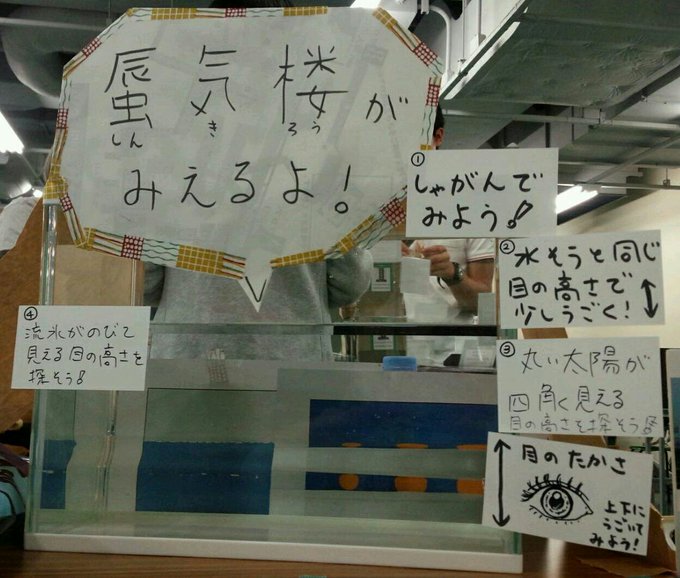 蜃気楼が
しんきろう
みえるよ!
①
しゃがんで
みよう!
②
水そうと同じ
目の高さで
少しうごく!
③
丸い太陽が
四角く見える
目の高さを探そう!
④
流氷がのびて
見える目の高さを
探そう!
目のたかさ
上下に
うごいて
みよう!